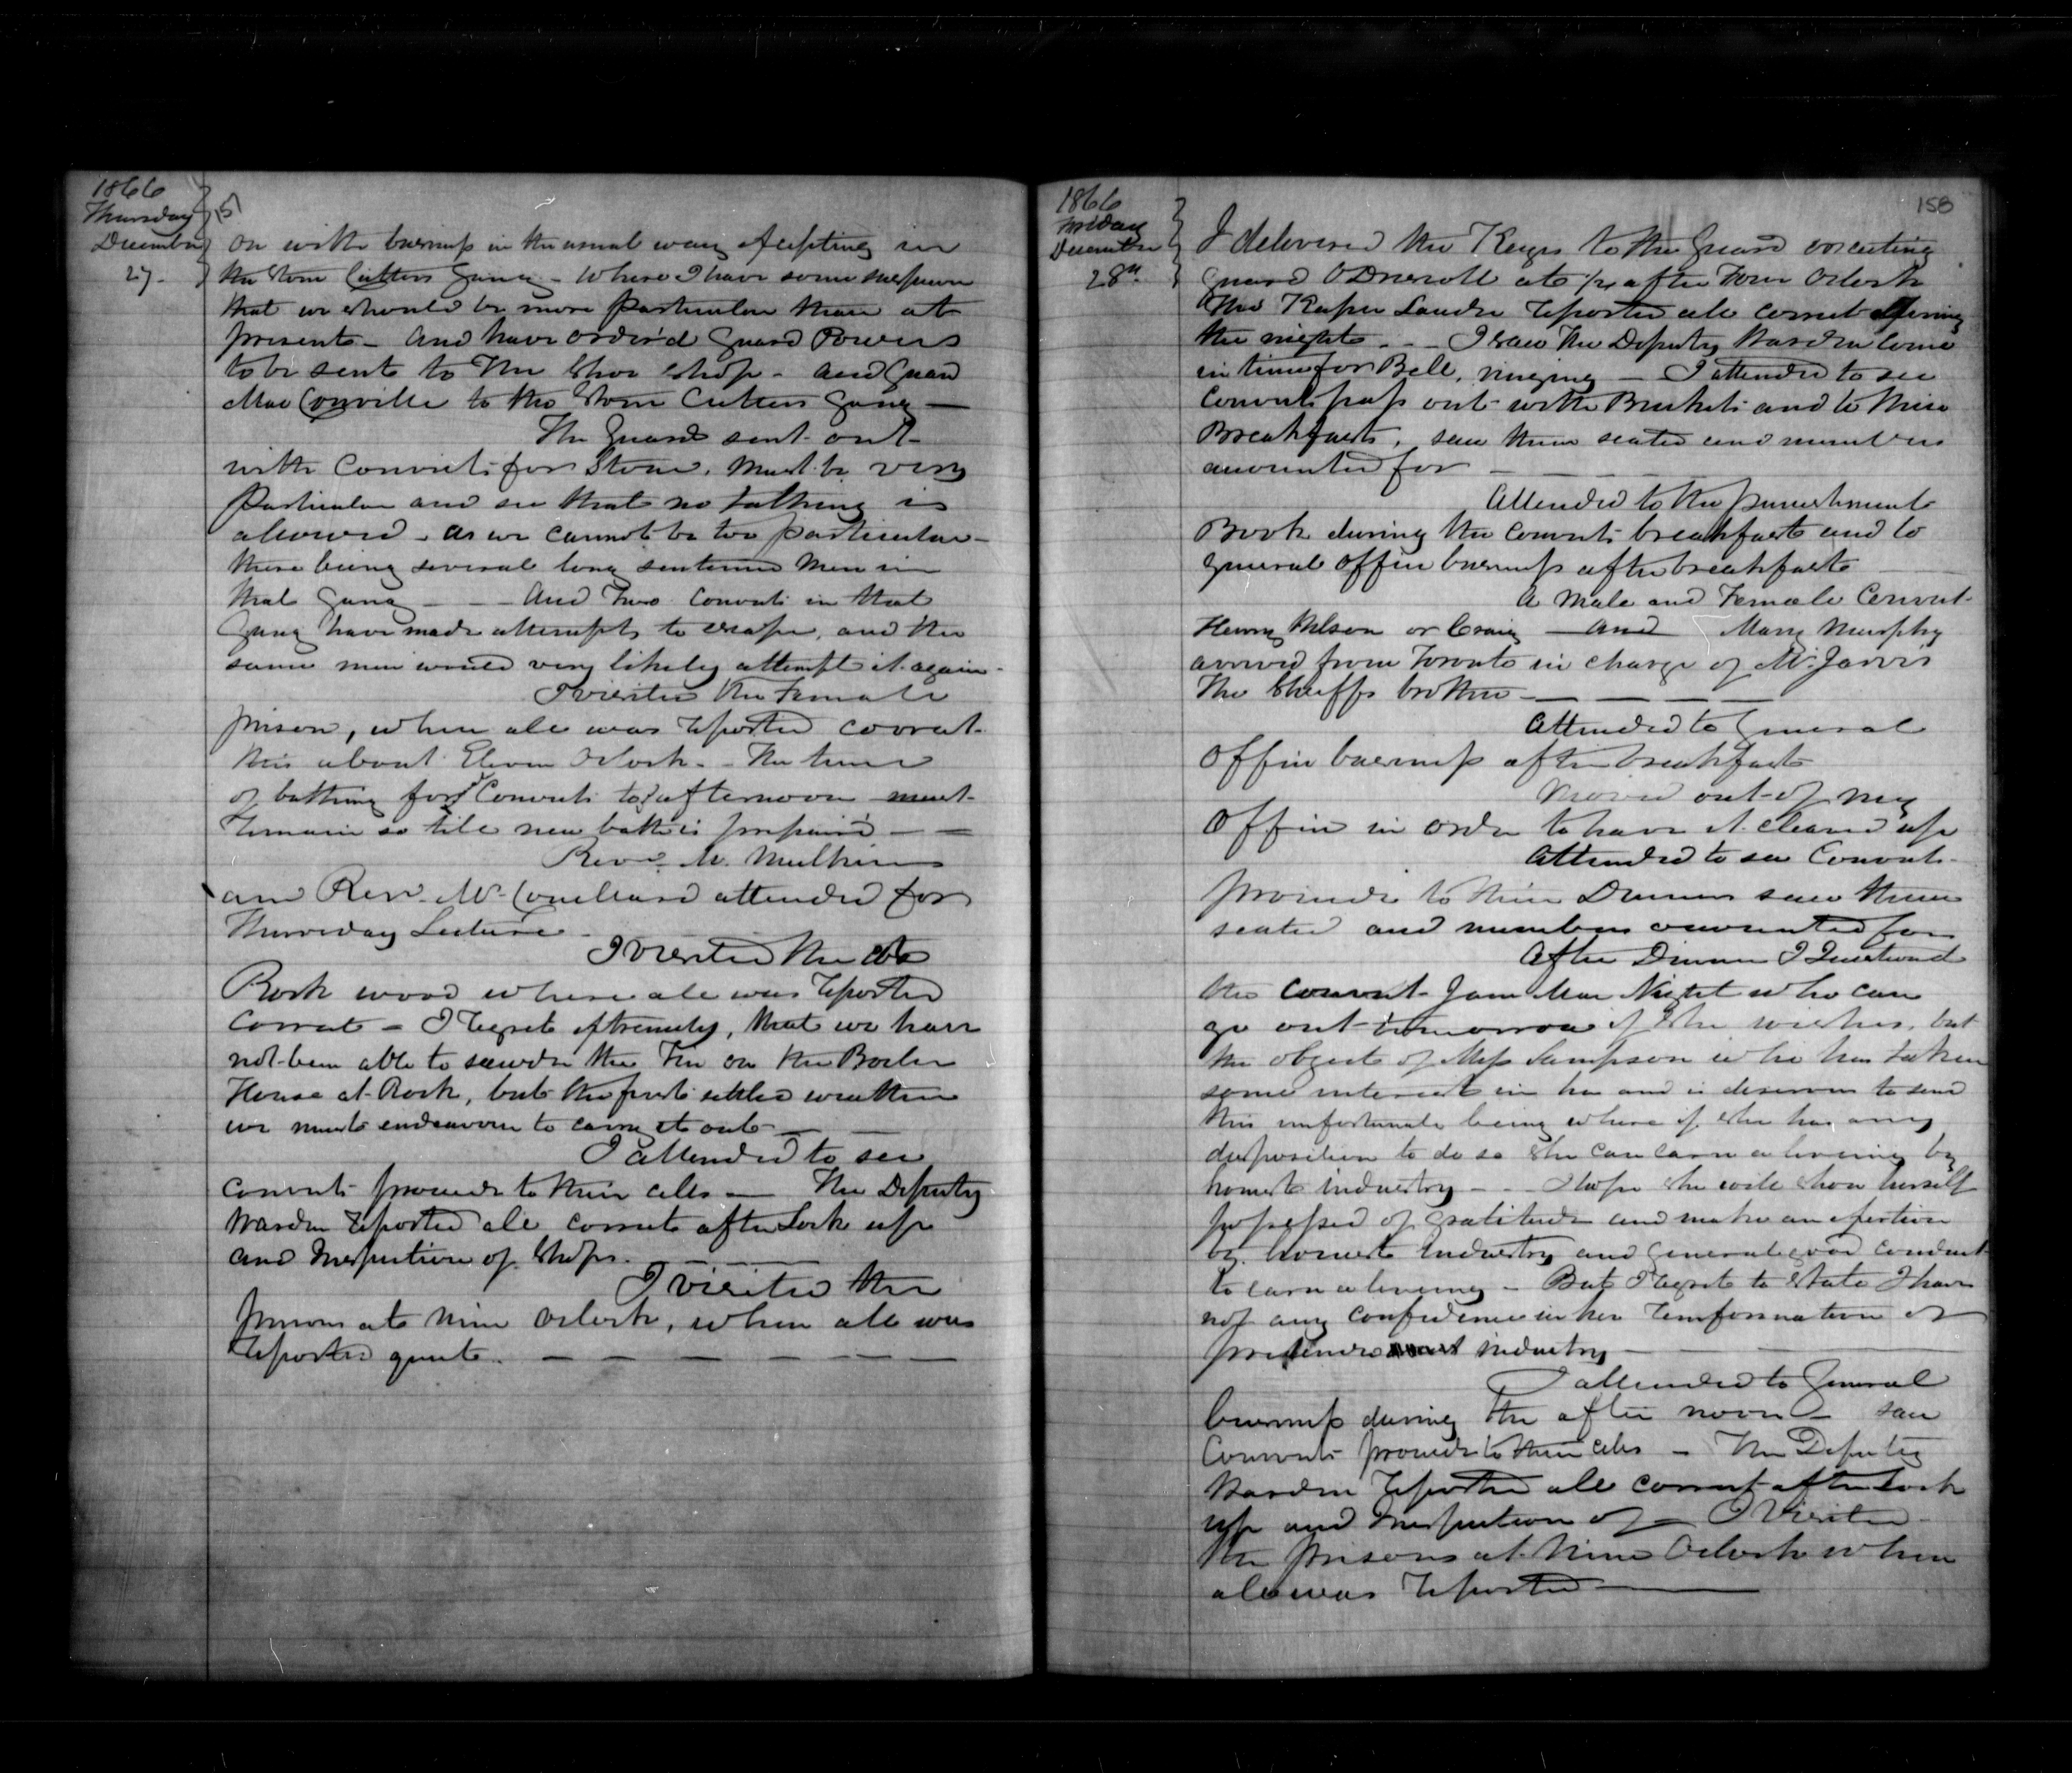 1866
Thursday
December
27.
on with business in the usual way Excepting in
the Stone Cutters Gang - Where I have some
that we should be more particular than at
present - and have order'd Guard Powers
to be sent to The Shoe Shop - and Guard
MacConville to the Stone Cutters Gang -
The Guards sent out
with Convicts for Stone, must be very
particular and see that no talking is
allowed - as we cannot be too particular -
there being several long sentenced men in
that Gang - - and Two Convicts in that
Gang have made attempts to escape, and the
same men would very likely attempt it again -
I visited the Female
prison, when all was reported correct.
this about Eleven Oclock - The time
of bathing for Convicts to afternoon must
remain so till new bath is prepaired - -
Revd. Mr. Mulkins
and Rev. Mr. attended for
Thursday Lecture -
I Visited the
Rock wood where all was reported
Correct - I regret extremely, that we have
not been able to sawder the Tin on the Boiler
House at Rock, but the first settled weather
we must endeavour to carry it out - -
I attended to see
Convicts proceed to their cells - The Deputy
Warden reported all correct after Lock up
and Inspection of Shops. - -
I visited the
prisons at nine Oclock, when all was
reported quiet. - - - - - -
158
1866
Friday
December
28th
I delivered the Keys to the Guard
Guard ODriscoll at 1/4 after Four Oclock
The Keeper reported all correct During
the night. - - I saw The Deputy Warden Come
in time for Bell, ringing - I attended to see
Convicts pass out with Buckets and to their
Breakfasts, saw them seated and numbers
accounted for - -
Attended to the punishment
Book during the Convicts breakfast and to
general Office business after breakfast
A Male and Female Convict
Henry Nelson or Craig - and Mary Murphy
arrived from Toronto in charge of Mr. Jarvis
The Sheriffs brother - - - -
Attended to General
Office business after breakfast
Moved out of my
Office in order to have it cleaned up
Attended to see Convicts
proceed to their Dinners saw them
seated and numbers accounted for
After Dinner I Questioned
the Convict Jane Mac Night who can
go out tomorrow if She wishes, but
the object of Miss Sampson who has taken
some interest in her and is desirous to send
this unfortunate being where if She has any
disposition to do so She can earn a living by
honest industry - - - I hope She will Show herself
possessed of gratitude and make an exertion
by honest Industry and General good conduct
to earn a living - But I regret to State I have
not any Confidence in her reinformation or
industry -
I attended to General
business during the after noon - saw
Convicts proceed to their cells - The Deputy
Warden reported all correct after Lock
up and Inspection of - I Visited
the prisons at Nine Oclock when
all was reported -